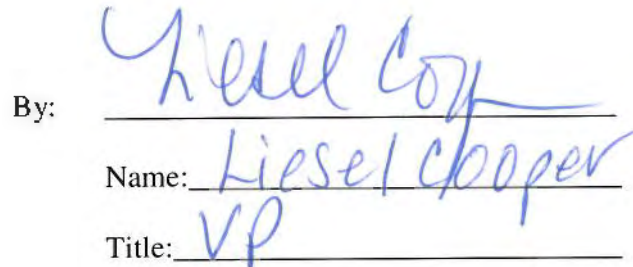 By: Liesel Coop
Name: Liesel Cooper
Title: VP